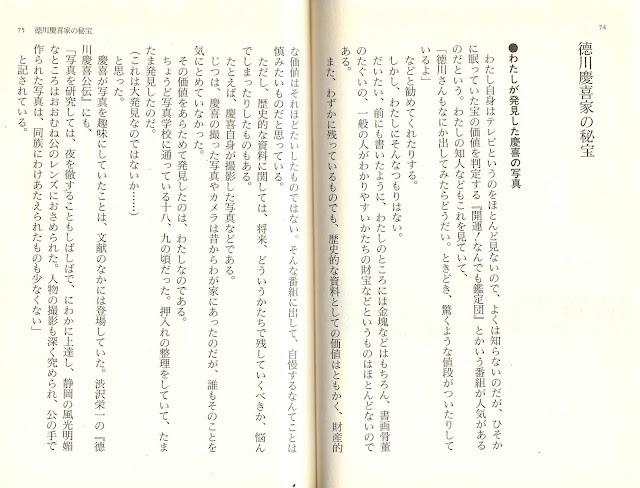 74
徳川慶喜家の秘宝
●わたしが発見した慶喜の写真
わたし自身はテレビというのをほとんど見ないので、よくは知らないのだが、ひそか
に眠っていた宝の価値を判定する『開運！なんでも鑑定団』とかいう番組が人気がある
のだという。わたしの知人などもこれを見ていて、
「徳川さんもなにか出してみたらどうだい。ときどき、驚くような値段がついたりして
いるよ」
などと勧めてくれたりする。
しかし、わたしにそんなつもりはない。
だいたい、前にも書いたように、わたしのところには金塊などはもちろん、書画骨董
のたぐいの、一般の人がわかりやすいかたちの財宝などというものはほとんどないので
ある。
また、わずかに残っているものでも、歴史的な資料としての価値はともかく、財産的
75 徳川慶喜家の秘宝
な価値はそれほどたいしたものではない。そんな番組に出して、自慢するなんてことは
慎みたいものだと思っている。
ただし、歴史的な資料に関しては、将来、どういうかたちで残していくべきか、悩ん
でしまったりしたものもある。
たとえば、慶喜自身が撮影した写真などである。
じつは、慶喜の撮った写真やカメラは昔からわが家にあったのだが、誰もそのことを
気にとめていなかった。
その価値をあらためて発見したのは、わたしなのである。
ちょうど写真学校に通っている十八、九の頃だった。押入れの整理をしていて、たま
たま発見したのだ。
（これは大発見なのではないか……）
と思った。
慶喜が写真を趣味にしていたことは、文献のなかには登場していた。渋沢栄一の『徳
川慶喜公伝』にも、
「写真を研究しては、夜を徹することもしばしばで、にわかに上達し、静岡の風光明媚
なところはおおむね公のレンズにおさめられた。人物の撮影も深く究められ、公の手で
作られた写真は、同族にわけあたえられたものも少なくない」
と記されている。